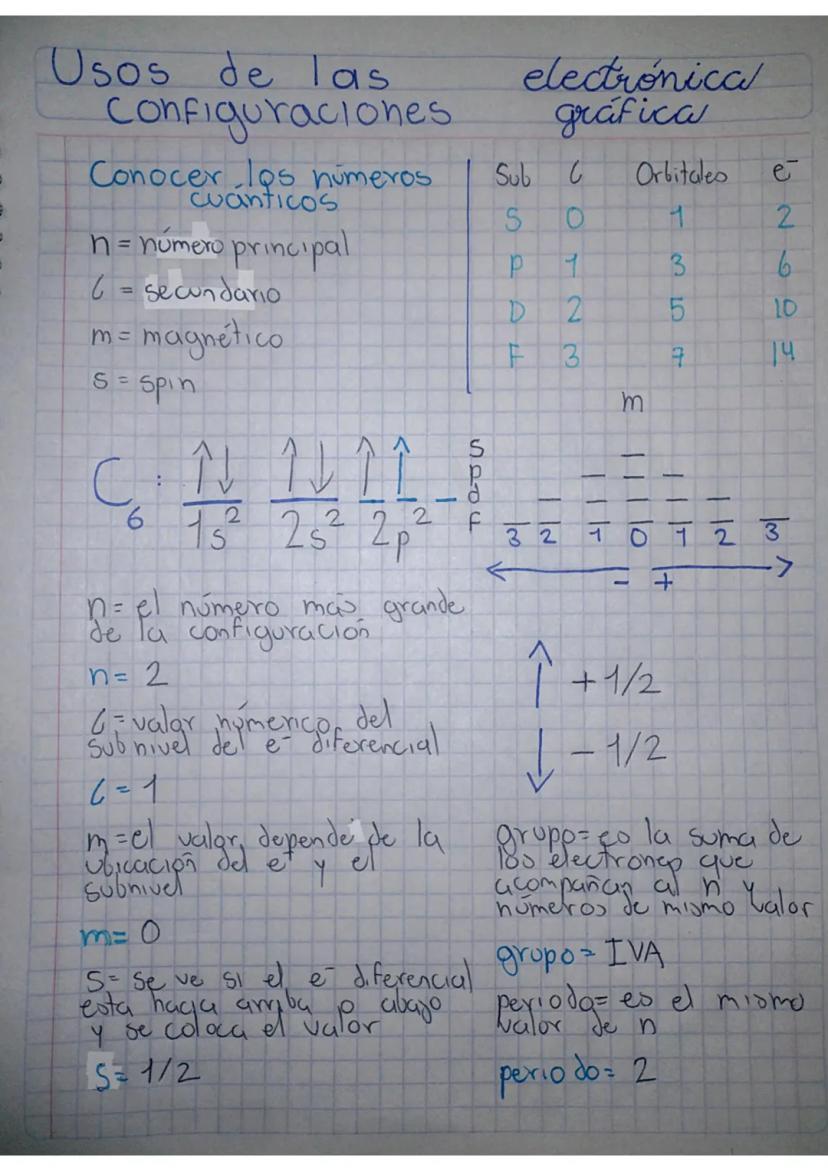 Usos de las electrónica
configuraciones gráfica
Conocer los números
cuánticos
n = número principal
l = secundario
m = magnético
s = spin
Sub l Orbitales e⁻
S 0 1 2
P 1 3 6
D 2 5 10
F 3 7 14
m
C₆: ↑↓ ↑↓ ↑ ↑ _
1s² 2s² 2p²
s
p
d
f
3 2 1 0 1 2 3
- +
n = el número más grande
de la configuración
n = 2
l = valor númerico del
subnivel del e⁻ diferencial
l = 1
m = el valor depende de la
ubicación del e⁻ y el
subnivel
m = 0
S = se ve si el e⁻ diferencial
esta hacia arriba o abajo
y se coloca el valor
S = 1/2
↑ + 1/2
↓ - 1/2
grupo = es la suma de
los electrones que
acompañan al n y
números de mismo valor
grupo = IVA
periodo = es el mismo
valor de n
periodo = 2